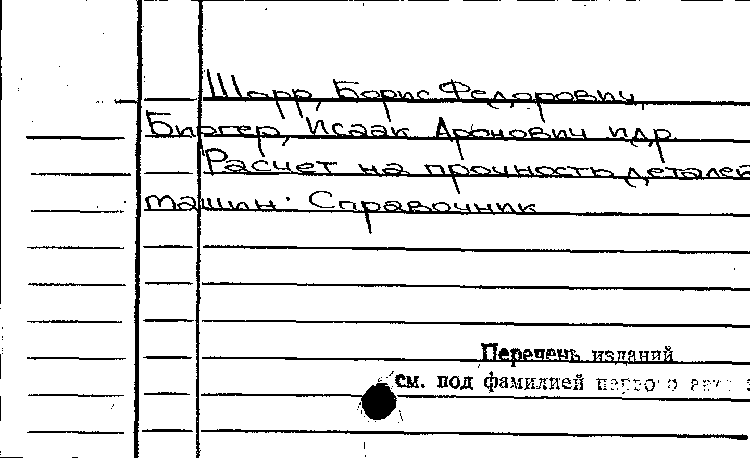 Шорр, Борис Федорович,
Биргер, Исаак Аронович и др.
Расчет на прочность деталей
машин: Справочник
Перечень изданий
см. под фамилией первого авт